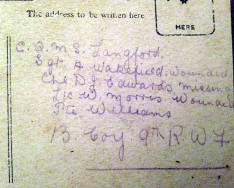 The address to be written here
HERE
C. Q. M. S. Langford.
Sgt A Wakefield, wounded
Cpl D J Edwards, missing
L/c W. Morris Wounded
Pte Williams
B. Coy 9th R W F